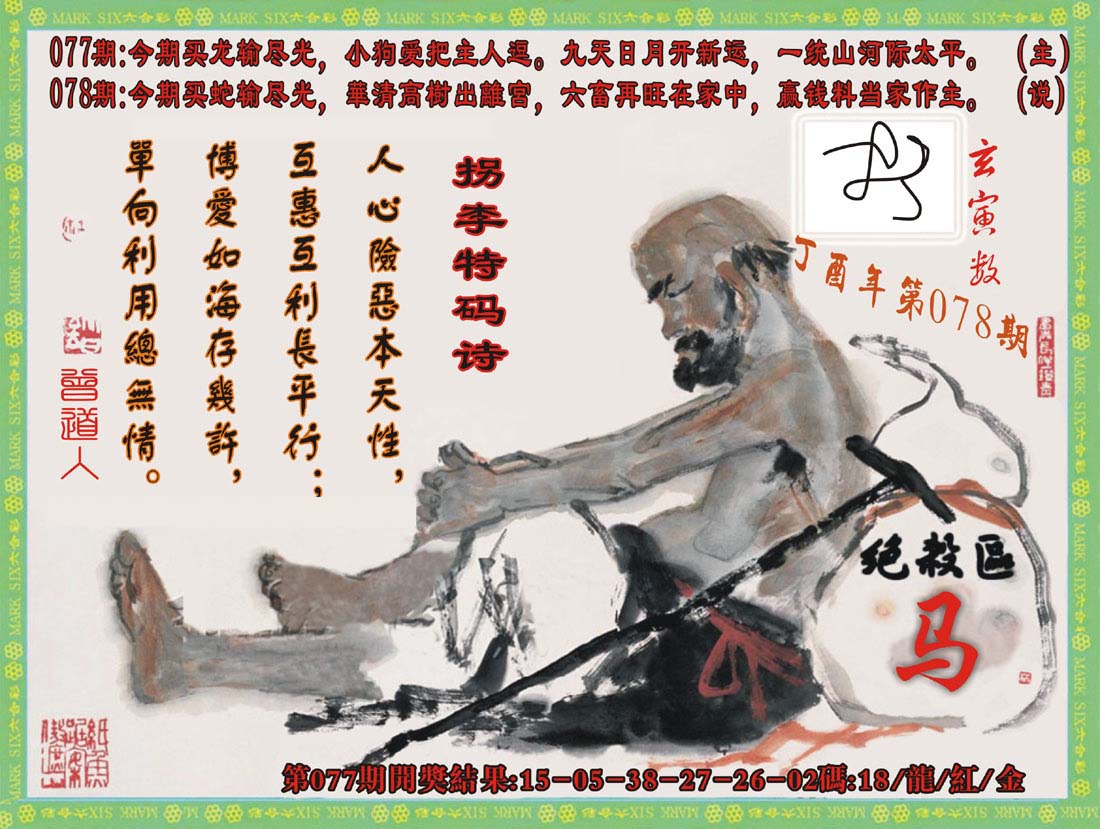 MARK SIX六合彩
077期:今期买龙输尽光，小狗爱把主人逗。九天日月开新运，一统山河际太平。 (主)
078期:今期买蛇输尽光，華清高樹出離宮，六畜再旺在家中，赢钱料当家作主。 (说)
拐李特码诗
人心險惡本天性，
互惠互利長平行；
博愛如海存幾許，
單向利用總無情。
曾道人
玄寅数
丁酉年第078期
绝殺區
马
第077期開獎結果:15-05-38-27-26-02碼:18/龍/紅/金